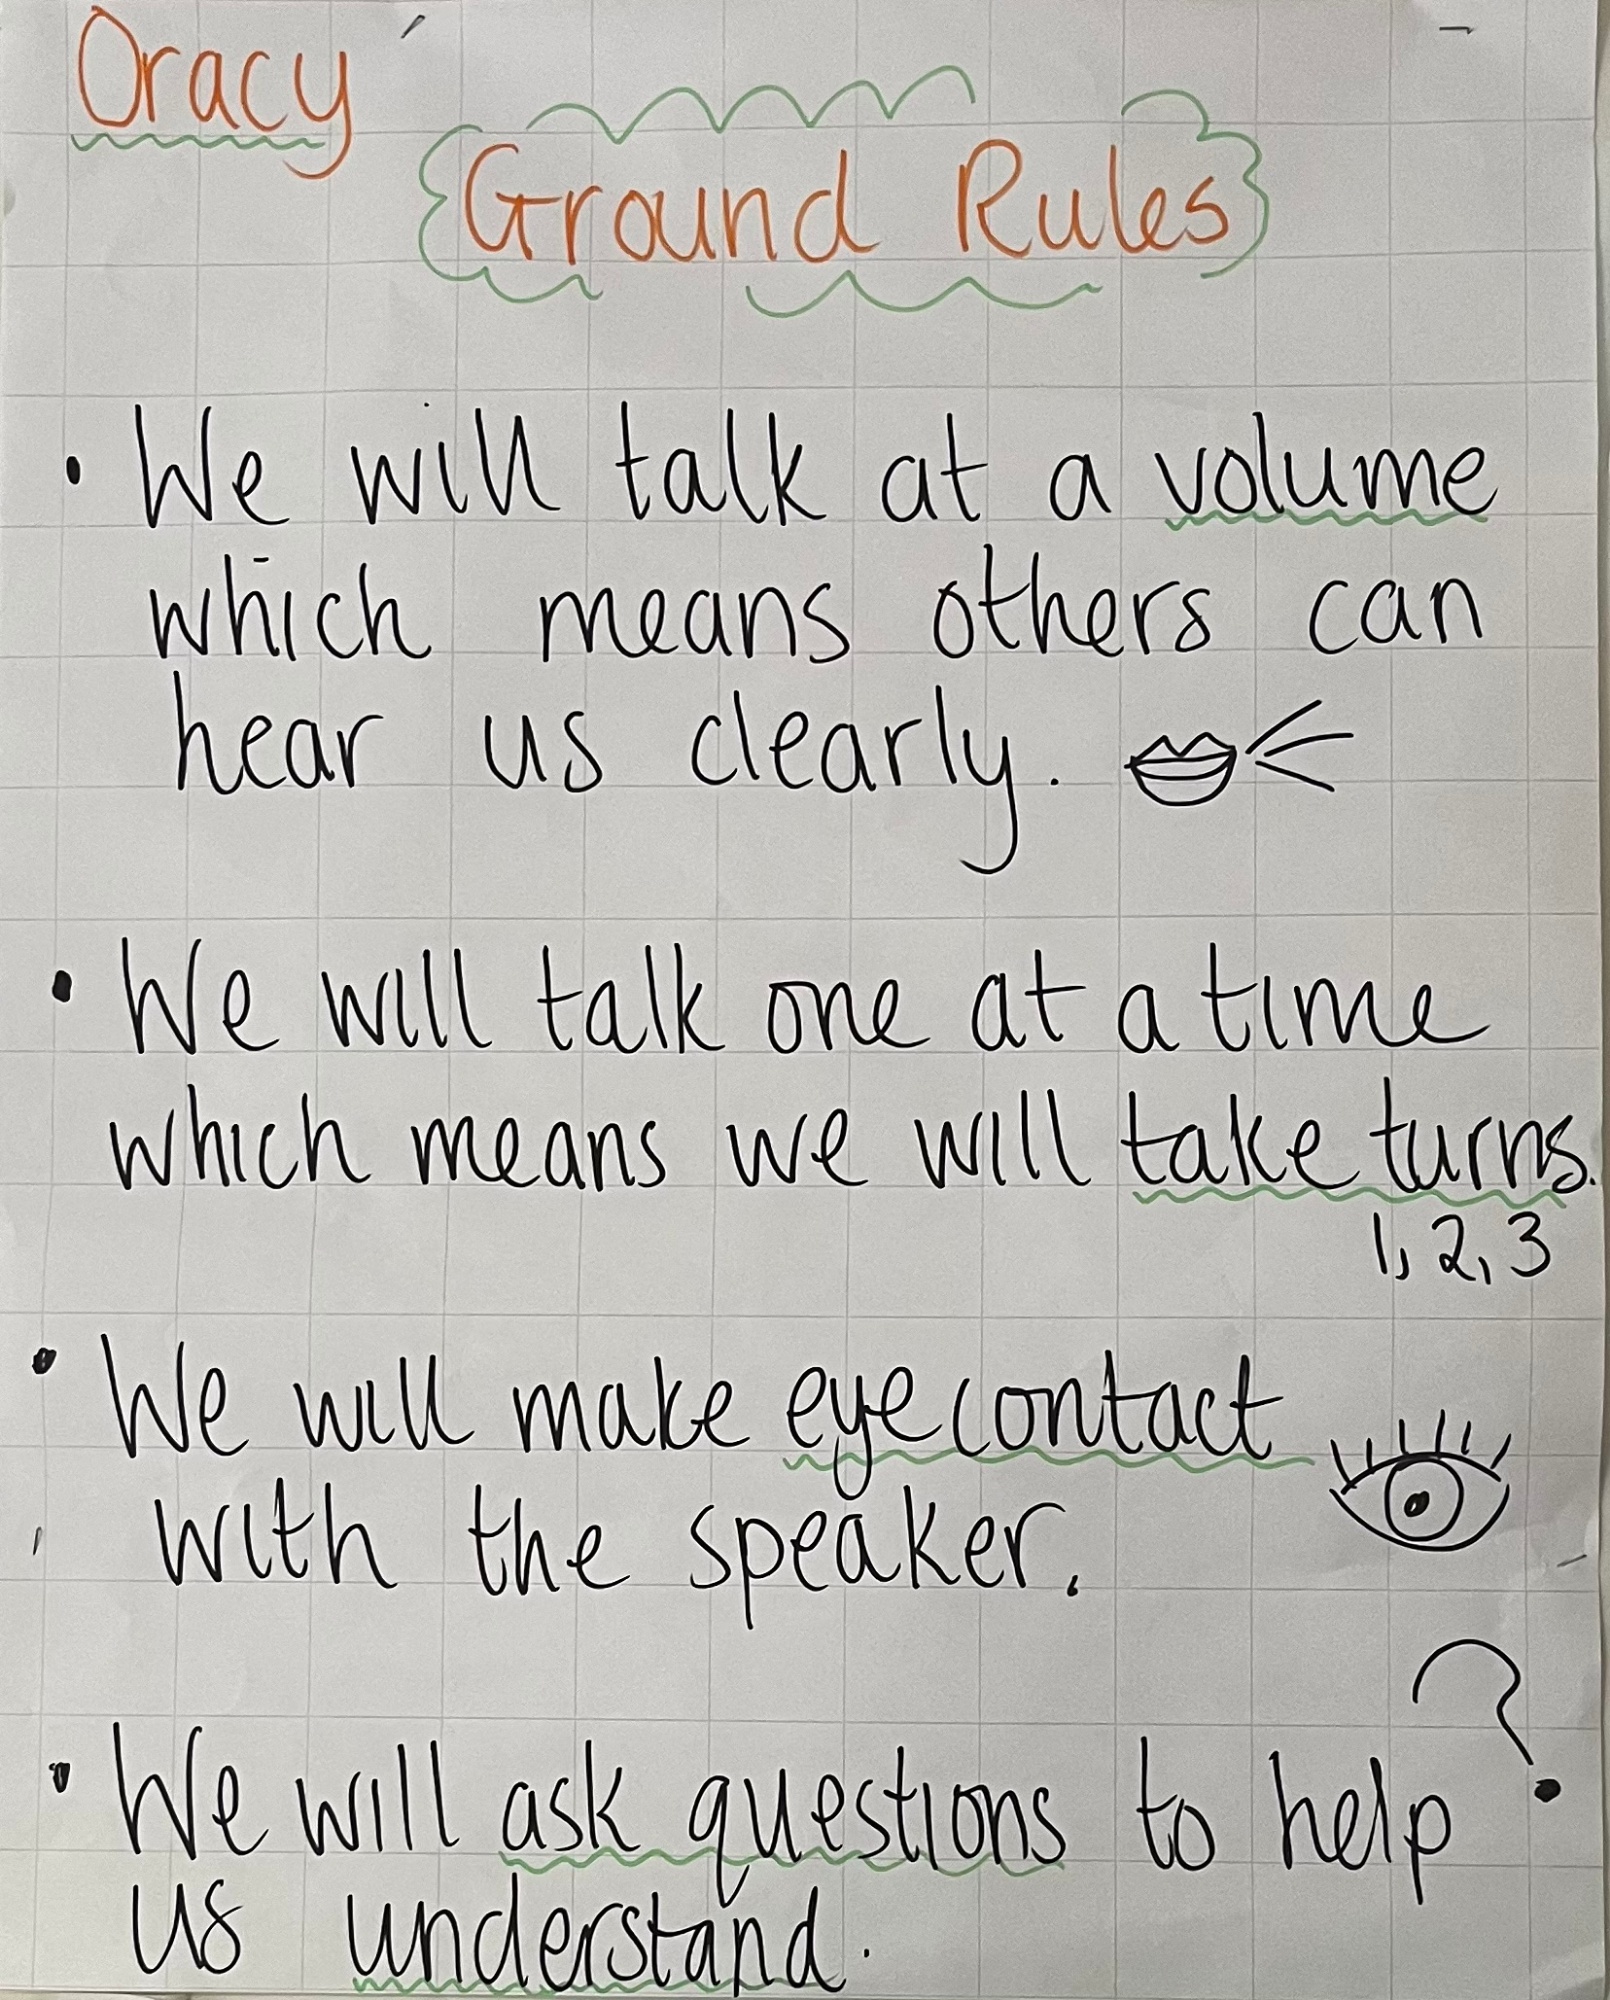 Oracy
Ground Rules
• We will talk at a volume
which means others can
hear us clearly.
• We will talk one at a time
which means we will take turns.
1, 2, 3
• We will make eye contact
with the speaker.
?
• We will ask questions to help
us understand.